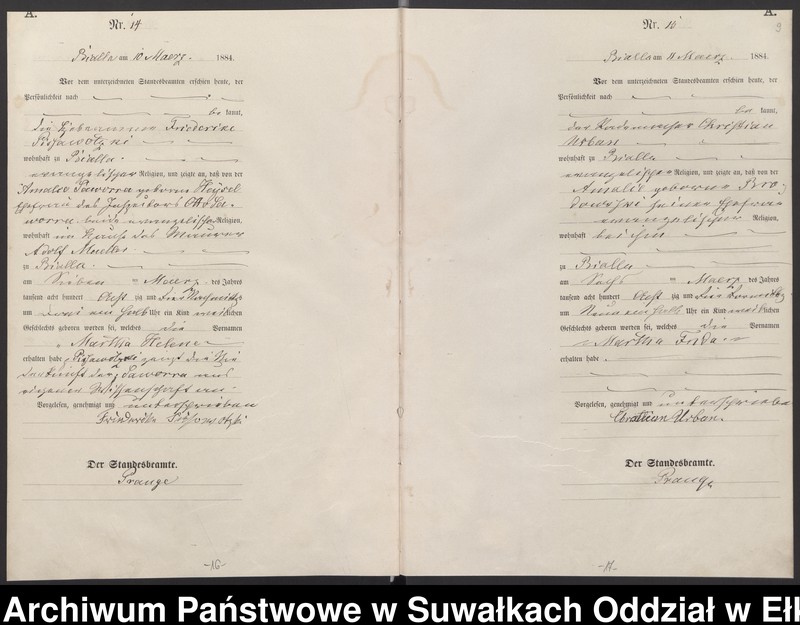 A.
Nr. 14
Bialla am 10 Maerz. 1884.
Vor dem unterzeichneten Standesbeamten erschien heute, der
Persönlichkeit nach
be kannt,
die Hebeamme Friederike
wohnhaft zu Bialla.
evangelischer Religion, und zeigte an, daß von der
Amalie Saworra geborene
Ehefrau des Inspectors
worra beide evangelischer Religion,
wohnhaft im Hause des Maurer
Adolf
zu Bialla.
am Sieben ten Maerz des Jahres
tausend acht hundert Acht zig und Vier Nachmittags
um ein halb Uhr ein Kind weiblichen
Geschlechts geboren worden sei, welches die Vornamen
Martha Helene
erhalten habe. zeigt die Nie
derkunft der Saworra aus
eigener Wissenschaft an.
Vorgelesen, genehmigt und unterschrieben
Friederike
Der Standesbeamte.
Prange
-16-
A.
9
Nr. 15
Bialla am 11 Maerz. 1884.
Vor dem unterzeichneten Standesbeamten erschien heute, der
Persönlichkeit nach
be kannt,
der Christian
Urban
wohnhaft zu Bialla
evangelischer Religion, und zeigte an, daß von der
Amalie geborene Bro
dowski seiner Ehefrau
evangelischer Religion,
wohnhaft bei ihm
zu Bialla
am Sechs ten Maerz des Jahres
tausend acht hundert Acht zig und Vier Vormittags
um Neun ein halb Uhr ein Kind weiblichen
Geschlechts geboren worden sei, welches die Vornamen
Martha Frida
erhalten habe.
Vorgelesen, genehmigt und unterschrieben
Christian Urban.
Der Standesbeamte.
Prange
-17-
Archiwum Państwowe w Suwałkach Oddział w Ełk